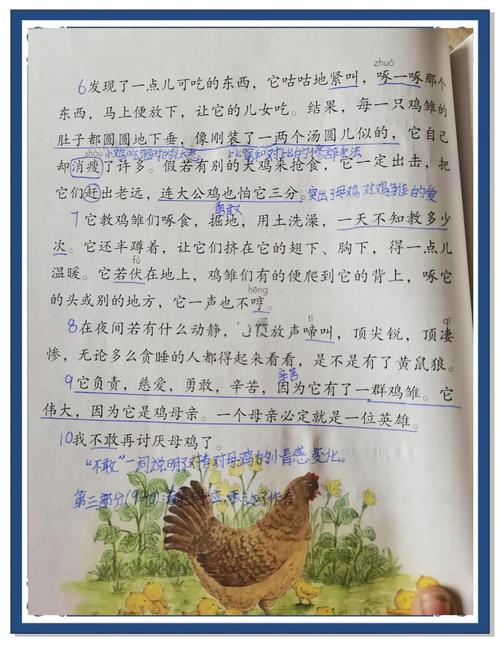 zhuó
6发现了一点儿可吃的东西，它咕咕地紧叫，啄一啄那个
东西，马上便放下，让它的儿女吃。结果，每一只鸡雏的
肚子都圆圆地下垂，像刚装了一两个汤圆儿似的，它自己
shòu 小鸡 比喻和对比的修辞手法
却消瘦了许多。假若有别的大鸡来抢食，它一定出击，把
它们赶出老远，连大公鸡也怕它三分。突出了母鸡对鸡雏的爱
勇敢
7它教鸡雏们啄食，掘地，用土洗澡，一天不知教多少
次。它还半蹲着，让它们挤在它的翅下、胸下，得一点儿
fú
温暖。它若伏在地上，鸡雏们有的便爬到它的背上，啄它
hēng
的头或别的地方，它一声也不哼。
tí qī
8在夜间若有什么动静，便放声啼叫，顶尖锐，顶凄
惨，无论多么贪睡的人都得起来看看，是不是有了黄鼠狼。
辛苦
9它负责，慈爱，勇敢，辛苦，因为它有了一群鸡雏。它
伟大，因为它是鸡母亲。一个母亲必定就是一位英雄。
10我不敢再讨厌母鸡了。
"不敢"一词说明了对母鸡的情感变化。
第二部分(9-10)